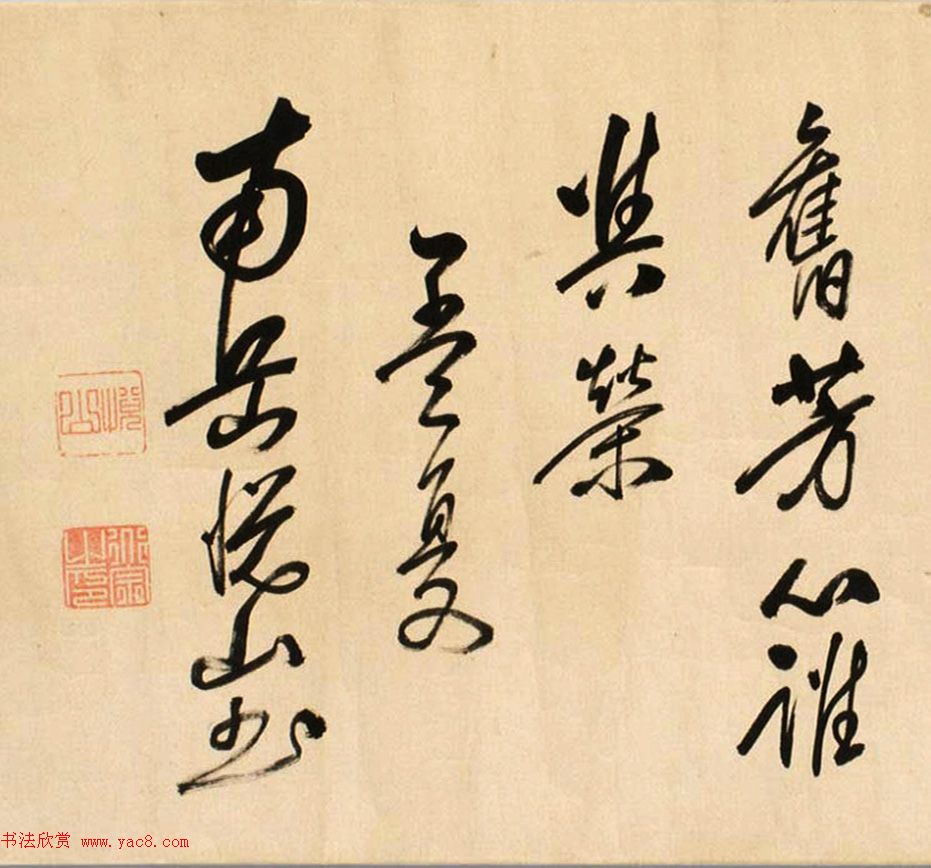 舊芳心誰
與榮
孟夏
南岳悅山书
悅山
书法欣赏 www.yac8.com